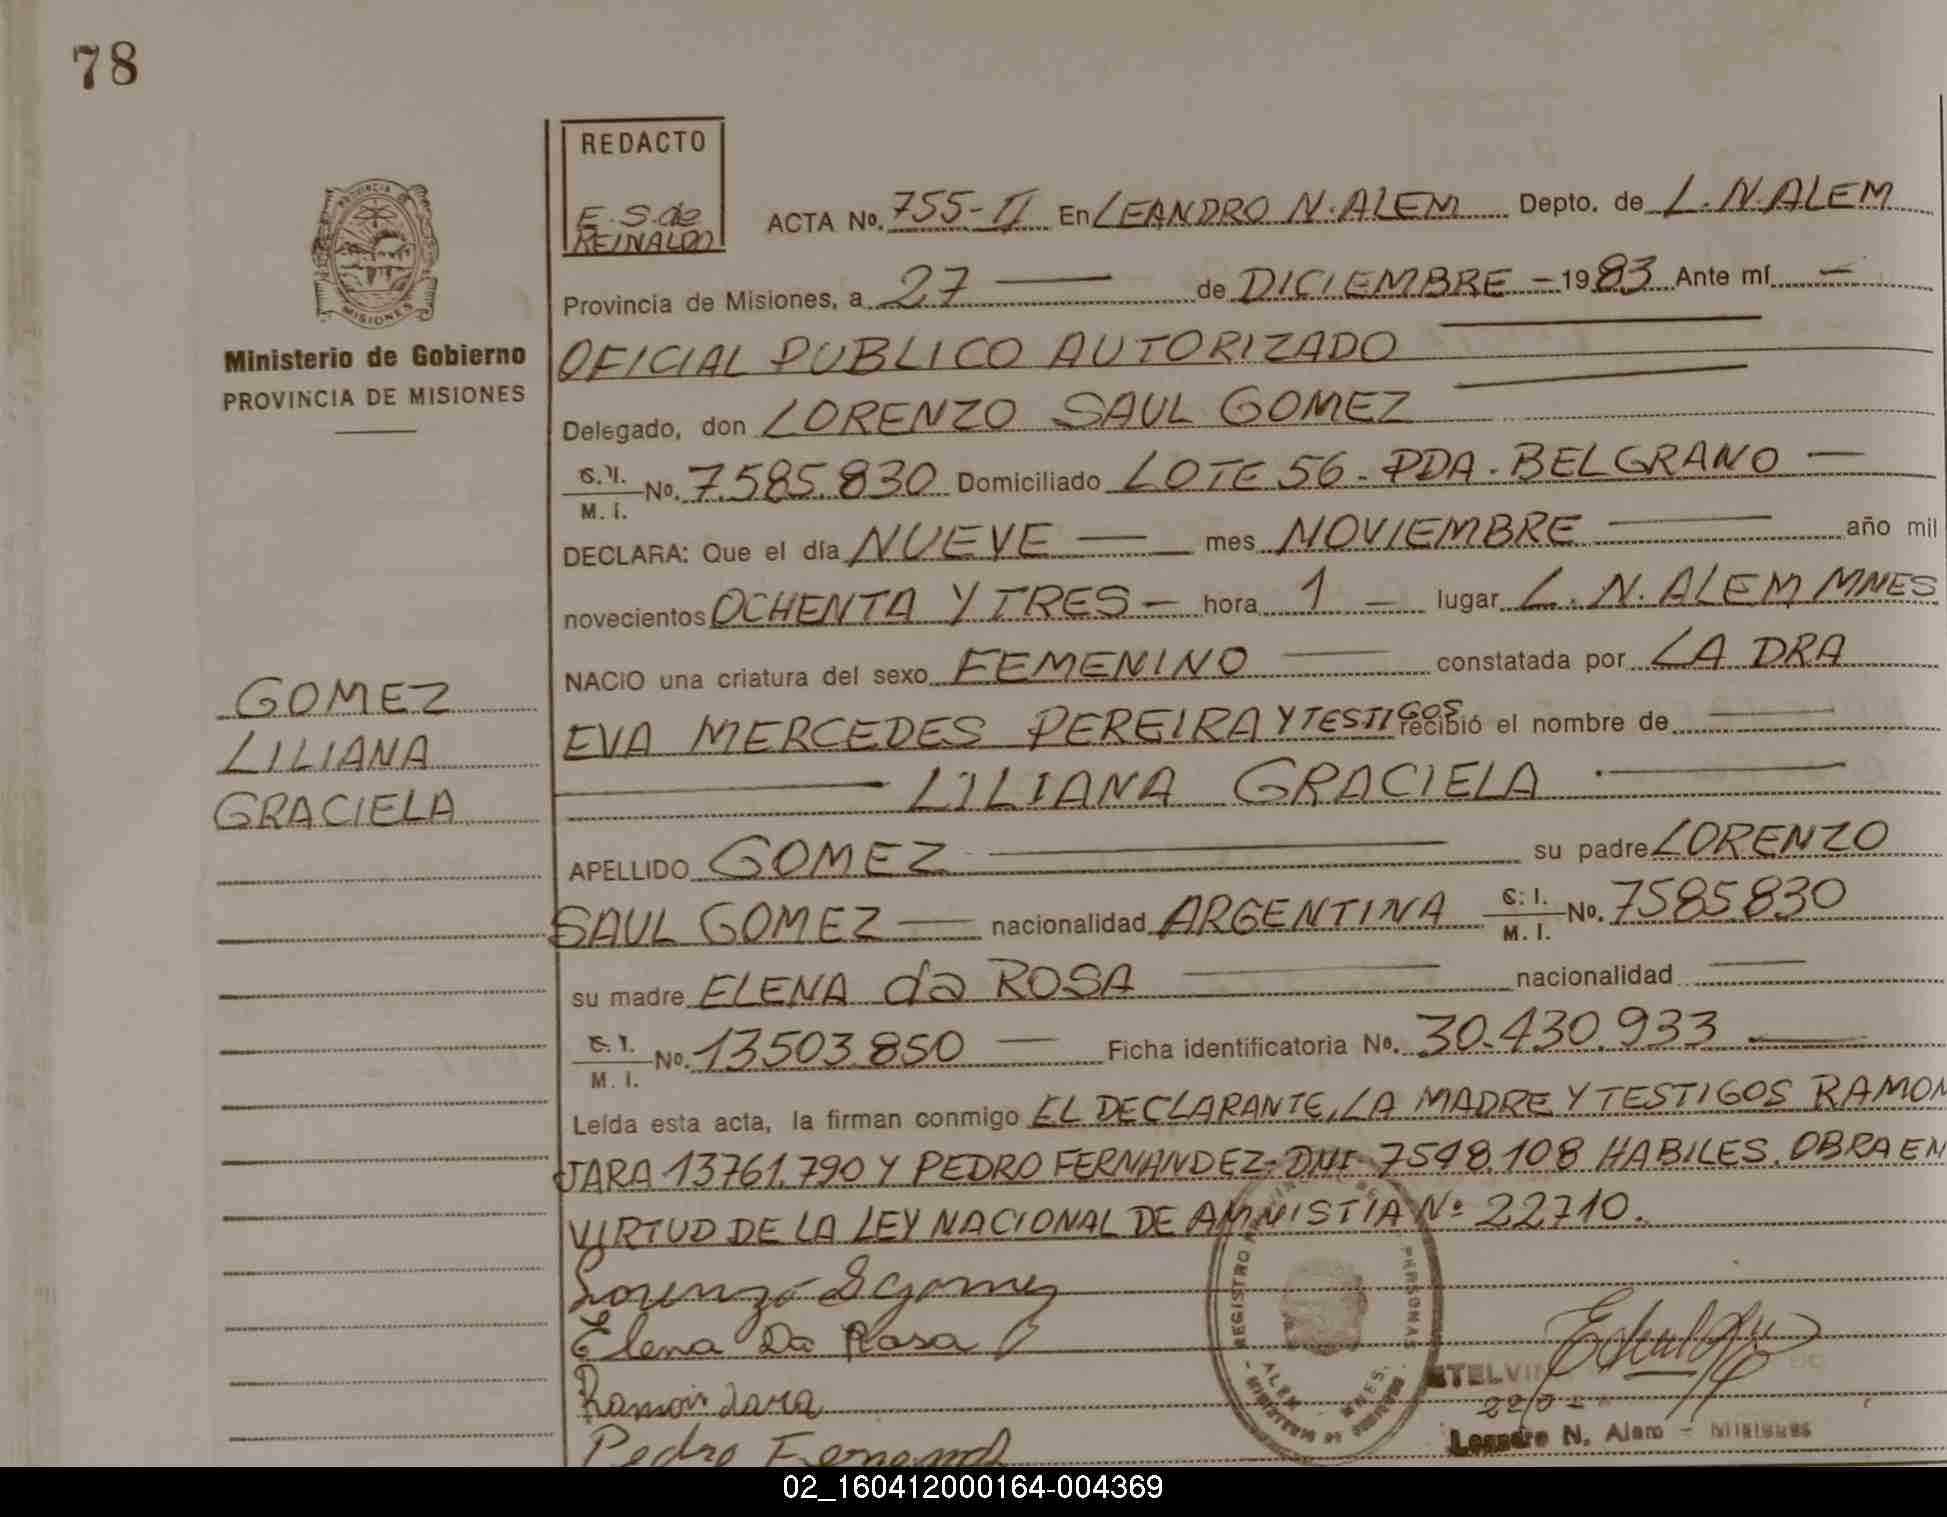 78
REDACTO
E. S. de
REINALDO
PROVINCIA
MISIONES
Ministerio de Gobierno
PROVINCIA DE MISIONES
GOMEZ
LILIANA
GRACIELA
ACTA No. 755-II En LEANDRO N. ALEM Depto. de L. N. ALEM
Provincia de Misiones, a 27 — de DICIEMBRE - 1983 Ante mí —
OFICIAL PUBLICO AUTORIZADO
Delegado, don LORENZO SAUL GOMEZ
C. I. / M. I. No. 7.585.830 Domiciliado LOTE 56 - PDA. BELGRANO —
DECLARA: Que el día NUEVE — mes NOVIEMBRE — año mil
novecientos OCHENTA Y TRES — hora 1 — lugar L. N. ALEM MNES
NACIO una criatura del sexo FEMENINO — constatada por LA DRA
EVA MERCEDES PEREIRA Y TESTIGOS recibió el nombre de —
— LILIANA GRACIELA —
APELLIDO GOMEZ — su padre LORENZO
SAUL GOMEZ — nacionalidad ARGENTINA C. I. / M. I. No. 7585.830
su madre ELENA da ROSA — nacionalidad —
C. I. / M. I. No. 13503.850 — Ficha identificatoria No. 30.430.933 —
Leída esta acta, la firman conmigo EL DECLARANTE, LA MADRE Y TESTIGOS RAMON
JARA 13761.790 Y PEDRO FERNANDEZ - DNI. 7548.108 HABILES. OBRA EN
VIRTUD DE LA LEY NACIONAL DE AMNISTIA Nº 22710.
Lorenzo S Gomez
Elena Da Rosa
Ramon Jara
Pedro Fernand
REGISTRO PERSONAS
ALEM MNES.
Leandro N. Alem - Misiones
02_160412000164-004369